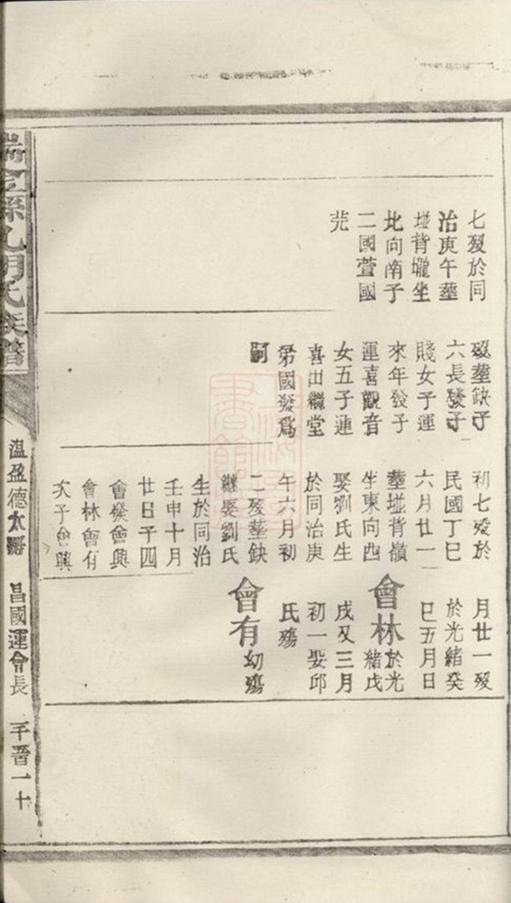 七殁於同
治庚午葬
塸背壠坐
北向南子
二國萱國
茪
殁葬缺子
六長發子
賤女子運
來年發子
運喜觀音
女五子運
喜出繼堂
弟國發爲
嗣
初七殁於
民國丁巳
六月廿一
葬塸背嶺
坐東向西
娶劉氏生
於同治庚
午六月初
二殁葬缺
繼娶劉氏
生於同治
壬申十月
廿日子四
會發會興
會林會有
次子會興
月廿一殁
於光緒癸
巳五月日
會林於光緒戊
戌又三月
初一娶邱
氏殤
會有幼殤
縣九
氏族譜
溫盈德太
昌國運會長